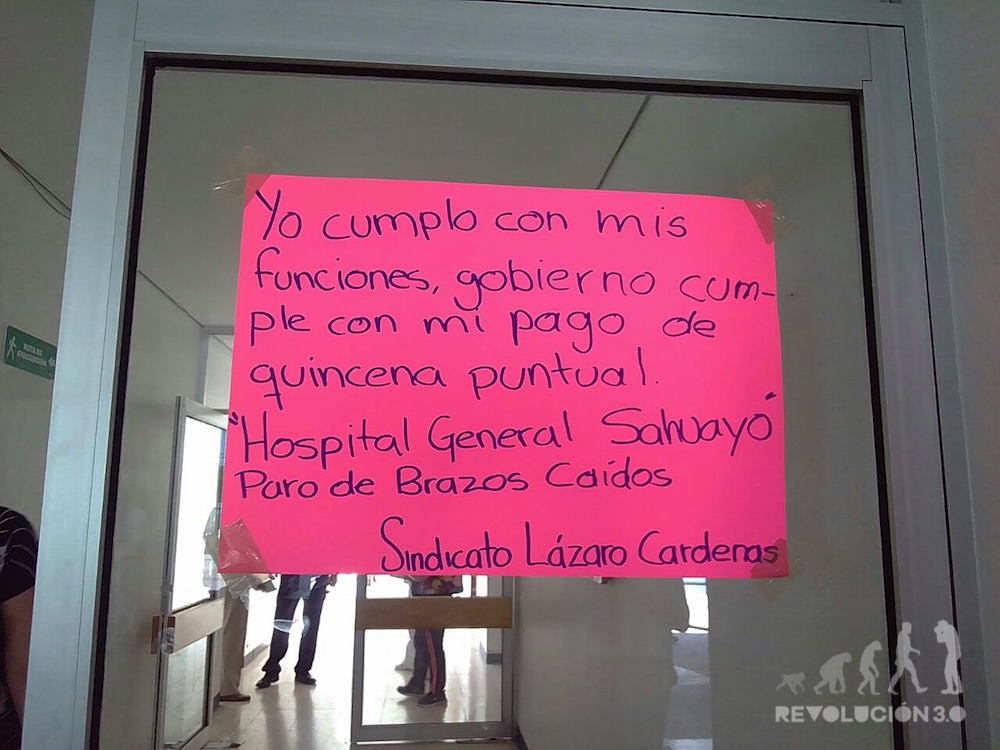 Yo cumplo con mis
funciones, gobierno cum-
ple con mi pago de
quincena puntual.
"Hospital General Sahuayo"
Paro de Brazos Caídos
Sindicato Lázaro Cardenas
RUTA DE
EVACUACIÓN
REVOLUCIÓN 3.0